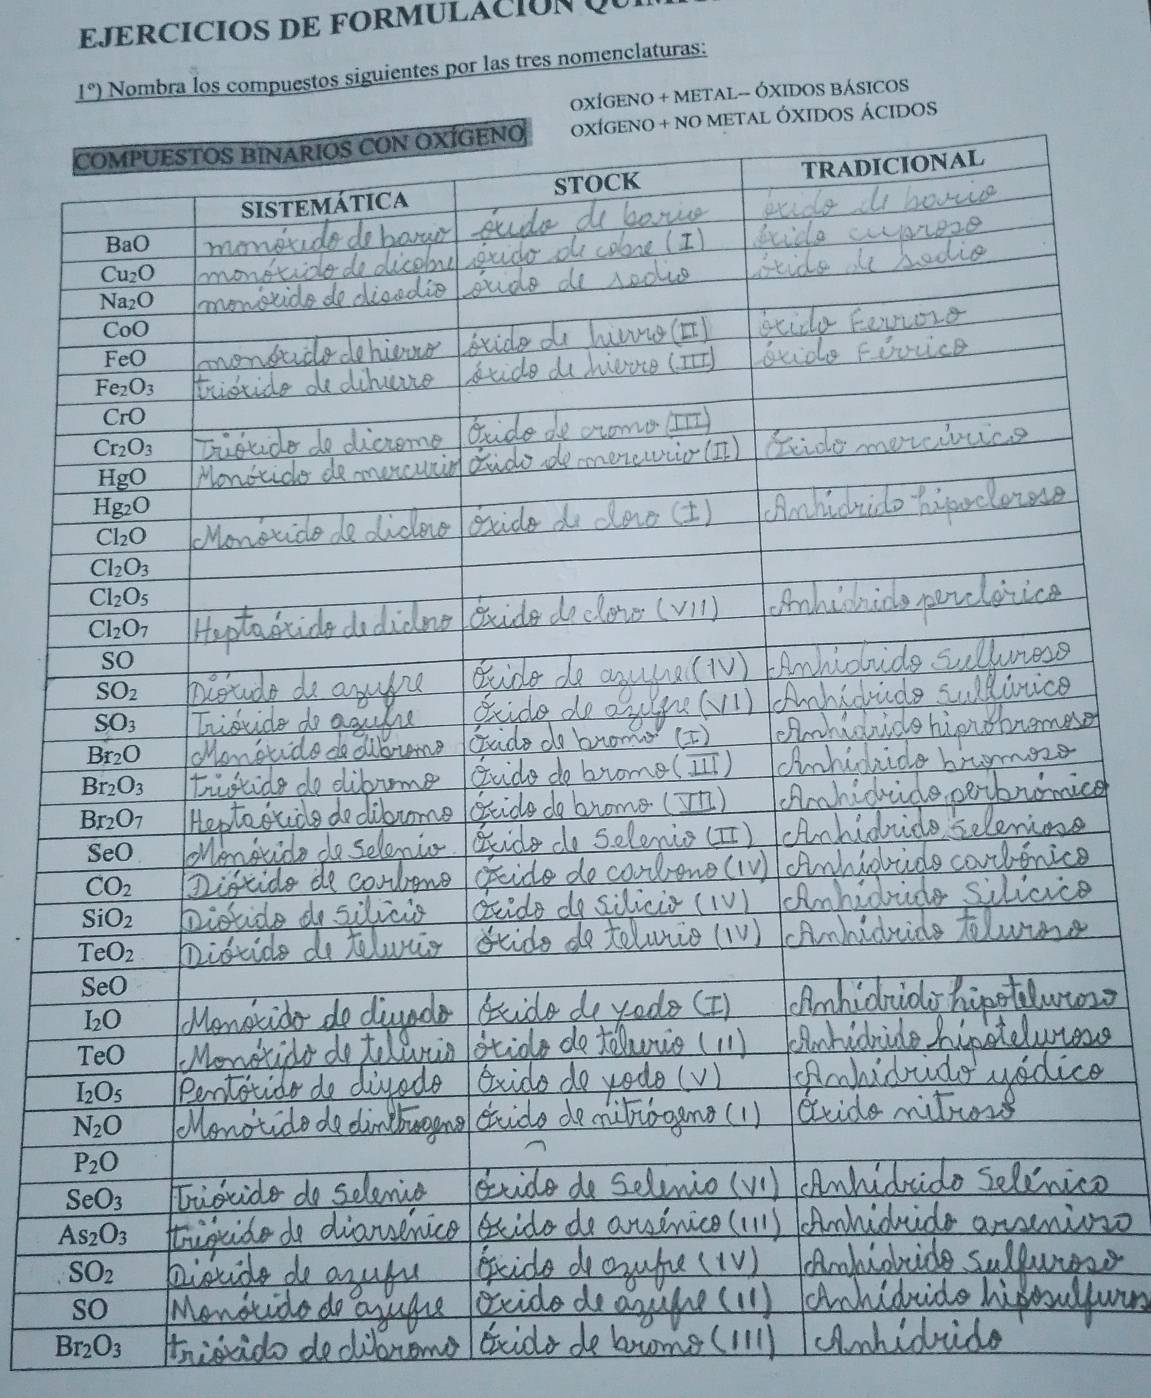 EJERCICIOS DE FORMULACIÓN
1º) Nombra los compuestos siguientes por las tres nomenclaturas:
OXÍGENO + METAL– ÓXIDOS BÁSICOS
OXÍGENO + NO METAL ÓXIDOS ÁCIDOS
COMPUESTOS BINARIOS CON OXÍGENO
SISTEMÁTICA STOCK TRADICIONAL
BaO monóxido de bario óxido de bario óxido de bario
Cu₂O monóxido de dicobre óxido de cobre (I) óxido cuproso
Na₂O monóxido de disodio óxido de sodio óxido de sodio
CoO
FeO monóxido de hierro óxido de hierro (II) óxido Ferroso
Fe₂O₃ trióxido de dihierro óxido de hierro (III) óxido Férrico
CrO
Cr₂O₃ Trióxido de dicromo Óxido de cromo (III)
HgO Monóxido de mercurio óxido de mercurio (II) Óxido mercúrico
Hg₂O
Cl₂O Monóxido de dicloro óxido de cloro (I) Anhídrido hipocloroso
Cl₂O₃
Cl₂O₅
Cl₂O₇ Heptaóxido de dicloro óxido de cloro (VII) Anhídrido perclórico
SO
SO₂ Dióxido de azufre óxido de azufre (IV) Anhídrido sulfuroso
SO₃ Trióxido de azufre óxido de azufre (VI) Anhídrido sulfúrico
Br₂O Monóxido de dibromo óxido de bromo (I) Anhídrido hiprobromoso
Br₂O₃ trióxido de dibromo óxido de bromo (III) Anhídrido bromoso
Br₂O₇ Heptaóxido de dibromo óxido de bromo (VII) Anhídrido perbrómico
SeO Monóxido de selenio óxido de selenio (II) Anhídrido selenioso
CO₂ Dióxido de carbono óxido de carbono (IV) Anhídrido carbónico
SiO₂ Dióxido de silicio óxido de silicio (IV) Anhídrido silícico
TeO₂ Dióxido de telurio óxido de telurio (IV) Anhídrido teluroso
SeO
I₂O Monóxido de diyodo óxido de yodo (I) Anhídrido hipoteluroso
TeO Monóxido de telurio óxido de telurio (II) Anhídrido hipoteluroso
I₂O₅ Pentóxido de diyodo óxido de yodo (V) Anhídrido yódico
N₂O Monóxido de dinitrogeno óxido de nitrógeno (I) Óxido nitroso
P₂O
SeO₃ Trióxido de selenio óxido de selenio (VI) Anhídrido selénico
As₂O₃ trióxido de diarsénico óxido de arsénico (III) Anhídrido arsenioso
SO₂ Dióxido de azufre óxido de azufre (IV) Anhídrido sulfuroso
SO Monóxido de azufre óxido de azufre (II) Anhídrido
Br₂O₃ trióxido de dibromo óxido de bromo (III) Anhídrido